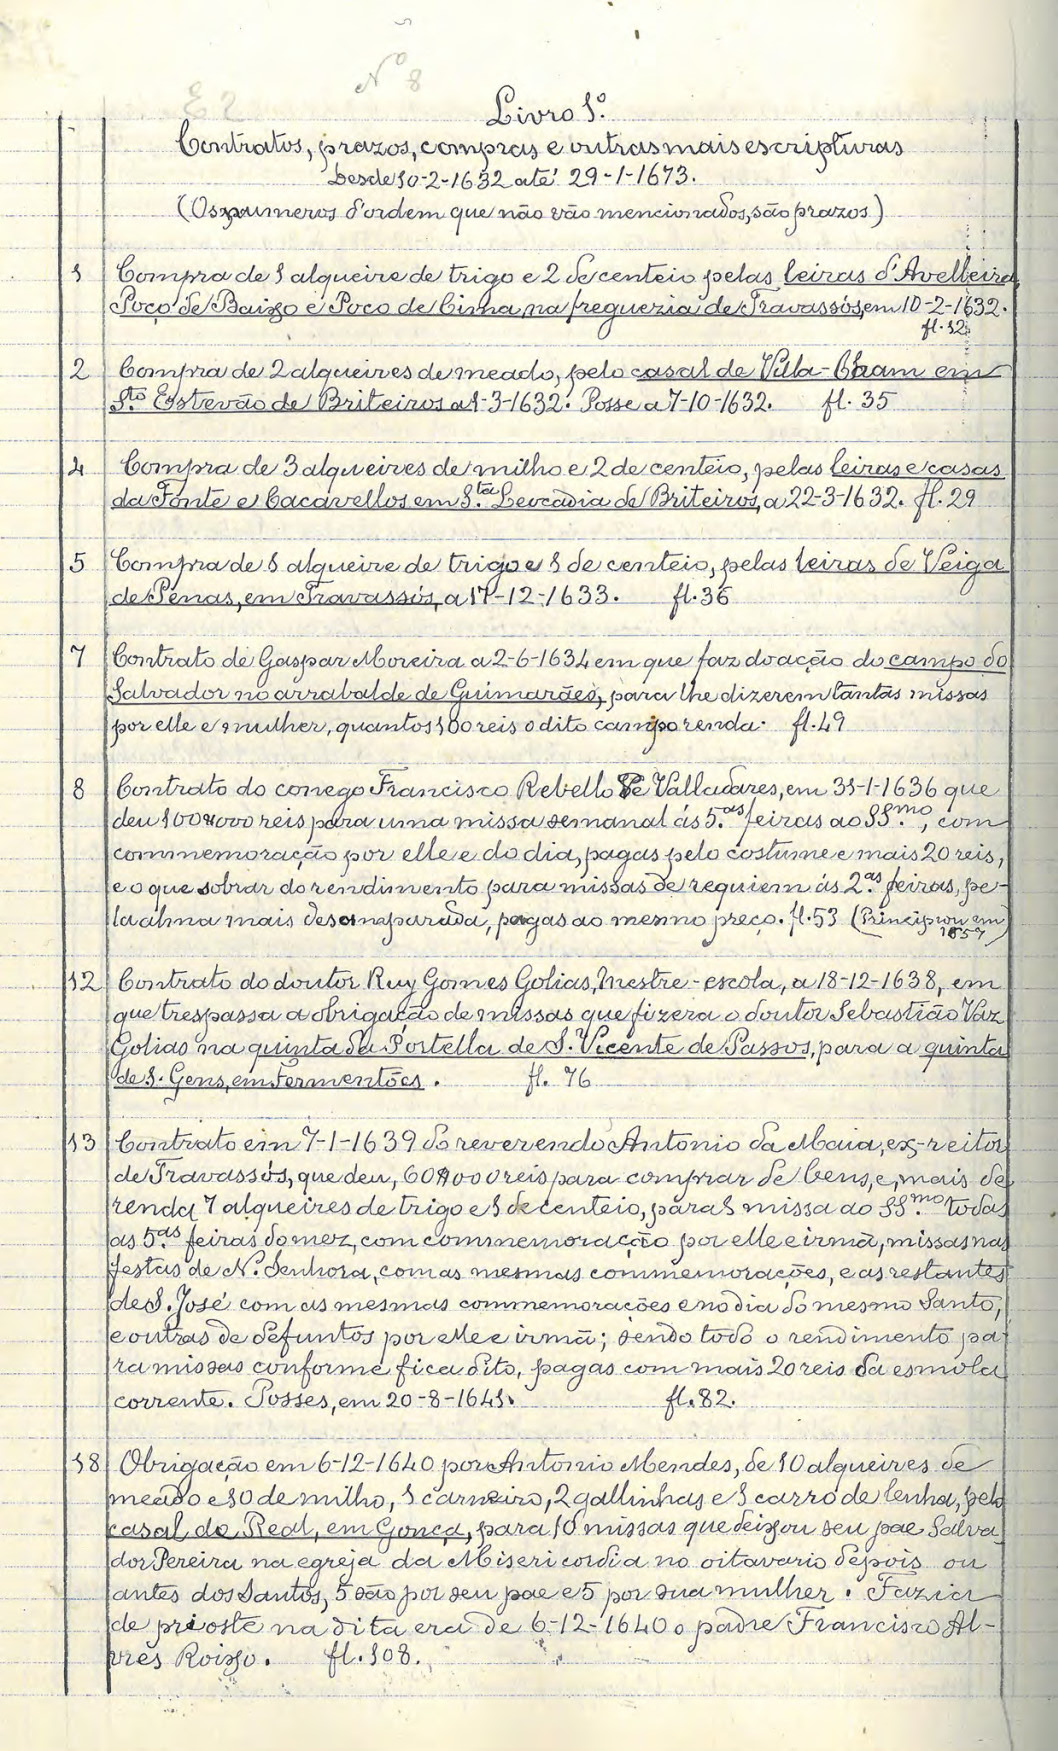 Nº 8
Livro 1º.
Contratos, prazos, compras e outras mais escripturas
Desde 10-2-1632 até 29-1-1673.
(Os numeros d'ordem que não vão mencionados, são prazos)
1 Compra de 1 alqueire de trigo e 2 de centeio pelas leiras d'Avelleira
Poço de Baixo e Poco de Cima, na freguezia de Travassós, em 10-2-1632.
fl. 12.
2 Compra de 2 alqueires de meado, pelo casal de Villa-Cham em
Sto. Estevão de Briteiros a 1-3-1632. Posse a 7-10-1632. fl. 35
4 Compra de 3 alqueires de milho e 2 de centeio, pelas leiras e casas
da Fonte e Cacavellos em S.ta Leocadia de Briteiros, a 22-3-1632. fl. 29
5 Compra de 1 alqueire de trigo e 1 de centeio, pelas leiras de Veiga
de Penas, em Travassós, a 17-12-1633. fl. 36
7 Contrato de Gaspar Moreira a 2-6-1634 em que faz doação do campo do
Salvador no arrabalde de Guimarães, para lhe dizerem tantas missas
por elle e mulher, quantos 100 reis o dito campo renda. fl. 49
8 Contrato do conego Francisco Rebello de Valladares, em 31-1-1636 que
deu 100$000 reis para uma missa semanal ás 5.as feiras ao SS.mo, com
commemoração por elle e do dia, pagas pelo costume e mais 20 reis,
e o que sobrar do rendimento para missas de requiem ás 2.as feiras, pe-
la alma mais desamparada, pagas ao mesmo preço. fl. 53 (Principiou em
1857)
12 Contrato do doutor Ruy Gomes Golias, Mestre-escola, a 18-12-1638, em
que trespassa a obrigação de missas que fizera o doutor Sebastião Vaz
Golias na quinta da Portella de S. Vicente de Passos, para a quinta
de S. Gens, em Fermentões. fl. 76
13 Contrato em 7-1-1639 do reverendo Antonio da Maia, ex-reitor
de Travassós, que deu, 60$000 reis para comprar de bens, e, mais de
renda 7 alqueires de trigo e 1 de centeio, para 1 missa ao SS.mo todas
as 5.as feiras do mez, com commemoração por elle e irmã, missas nas
festas de N. Senhora, com as mesmas commemorações, e as restantes
de S. José com as mesmas commemorações e no dia do mesmo Santo,
e outras de defuntos por elle e irmã; sendo todo o rendimento pa-
ra missas conforme fica dito, pagas com mais 20 reis da esmola
corrente. Posses, em 20-8-1641. fl. 82.
18 Obrigação em 6-12-1640 por Antonio Mendes, de 10 alqueires de
meado e 10 de milho, 1 carneiro, 2 gallinhas e 1 carro de lenha, pelo
casal do Real, em Gonça, para 10 missas que deixou seu pae Salva
dor Pereira na egreja da Misericordia no oitavario depois ou
antes dos Santos, 5 são por seu pae e 5 por sua mulher. Fazia
de prioste na dita era de 6-12-1640 o padre Francisco Al-
vres Roixo. fl. 108.